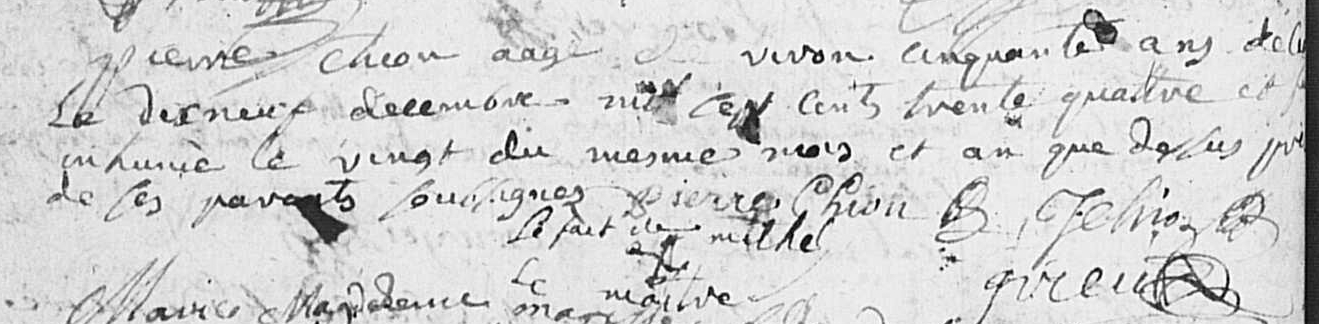 pierre chion aagé de viron cinquante ans décé
Le dixneuf decembre mil sept cents trente quattre et f
inhumé le vingt du mesme mois et an que dessus pré
de ses parents soussignes pierre Chion J Chion
Le fait de michel
Le maitre
Marie Magdelenne